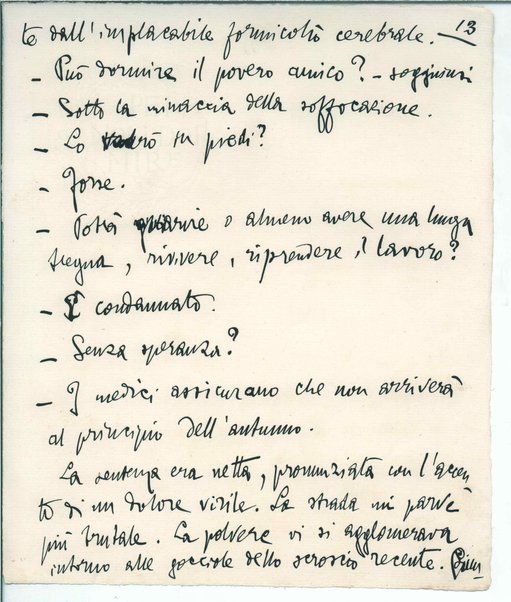 13
to dall'implacabile formicolìo cerebrale.
– Può dormire il povero amico? – soggiunsi
– Sotto la minaccia della soffocazione.
– Lo vedrò in piedi?
– Forse.
– Potrà guarire o almeno avere una lunga
tregua, rivivere, riprendere il lavoro?
– È condannato.
– Senza speranza?
– I medici assicurano che non arriverà
al principio dell'autunno.
La sentenza era netta, pronunziata con l'accen
to di un dolore virile. La strada mi parve
più brutale. La polvere vi si agglomerava
intorno alle gocciole dello scroscio recente.